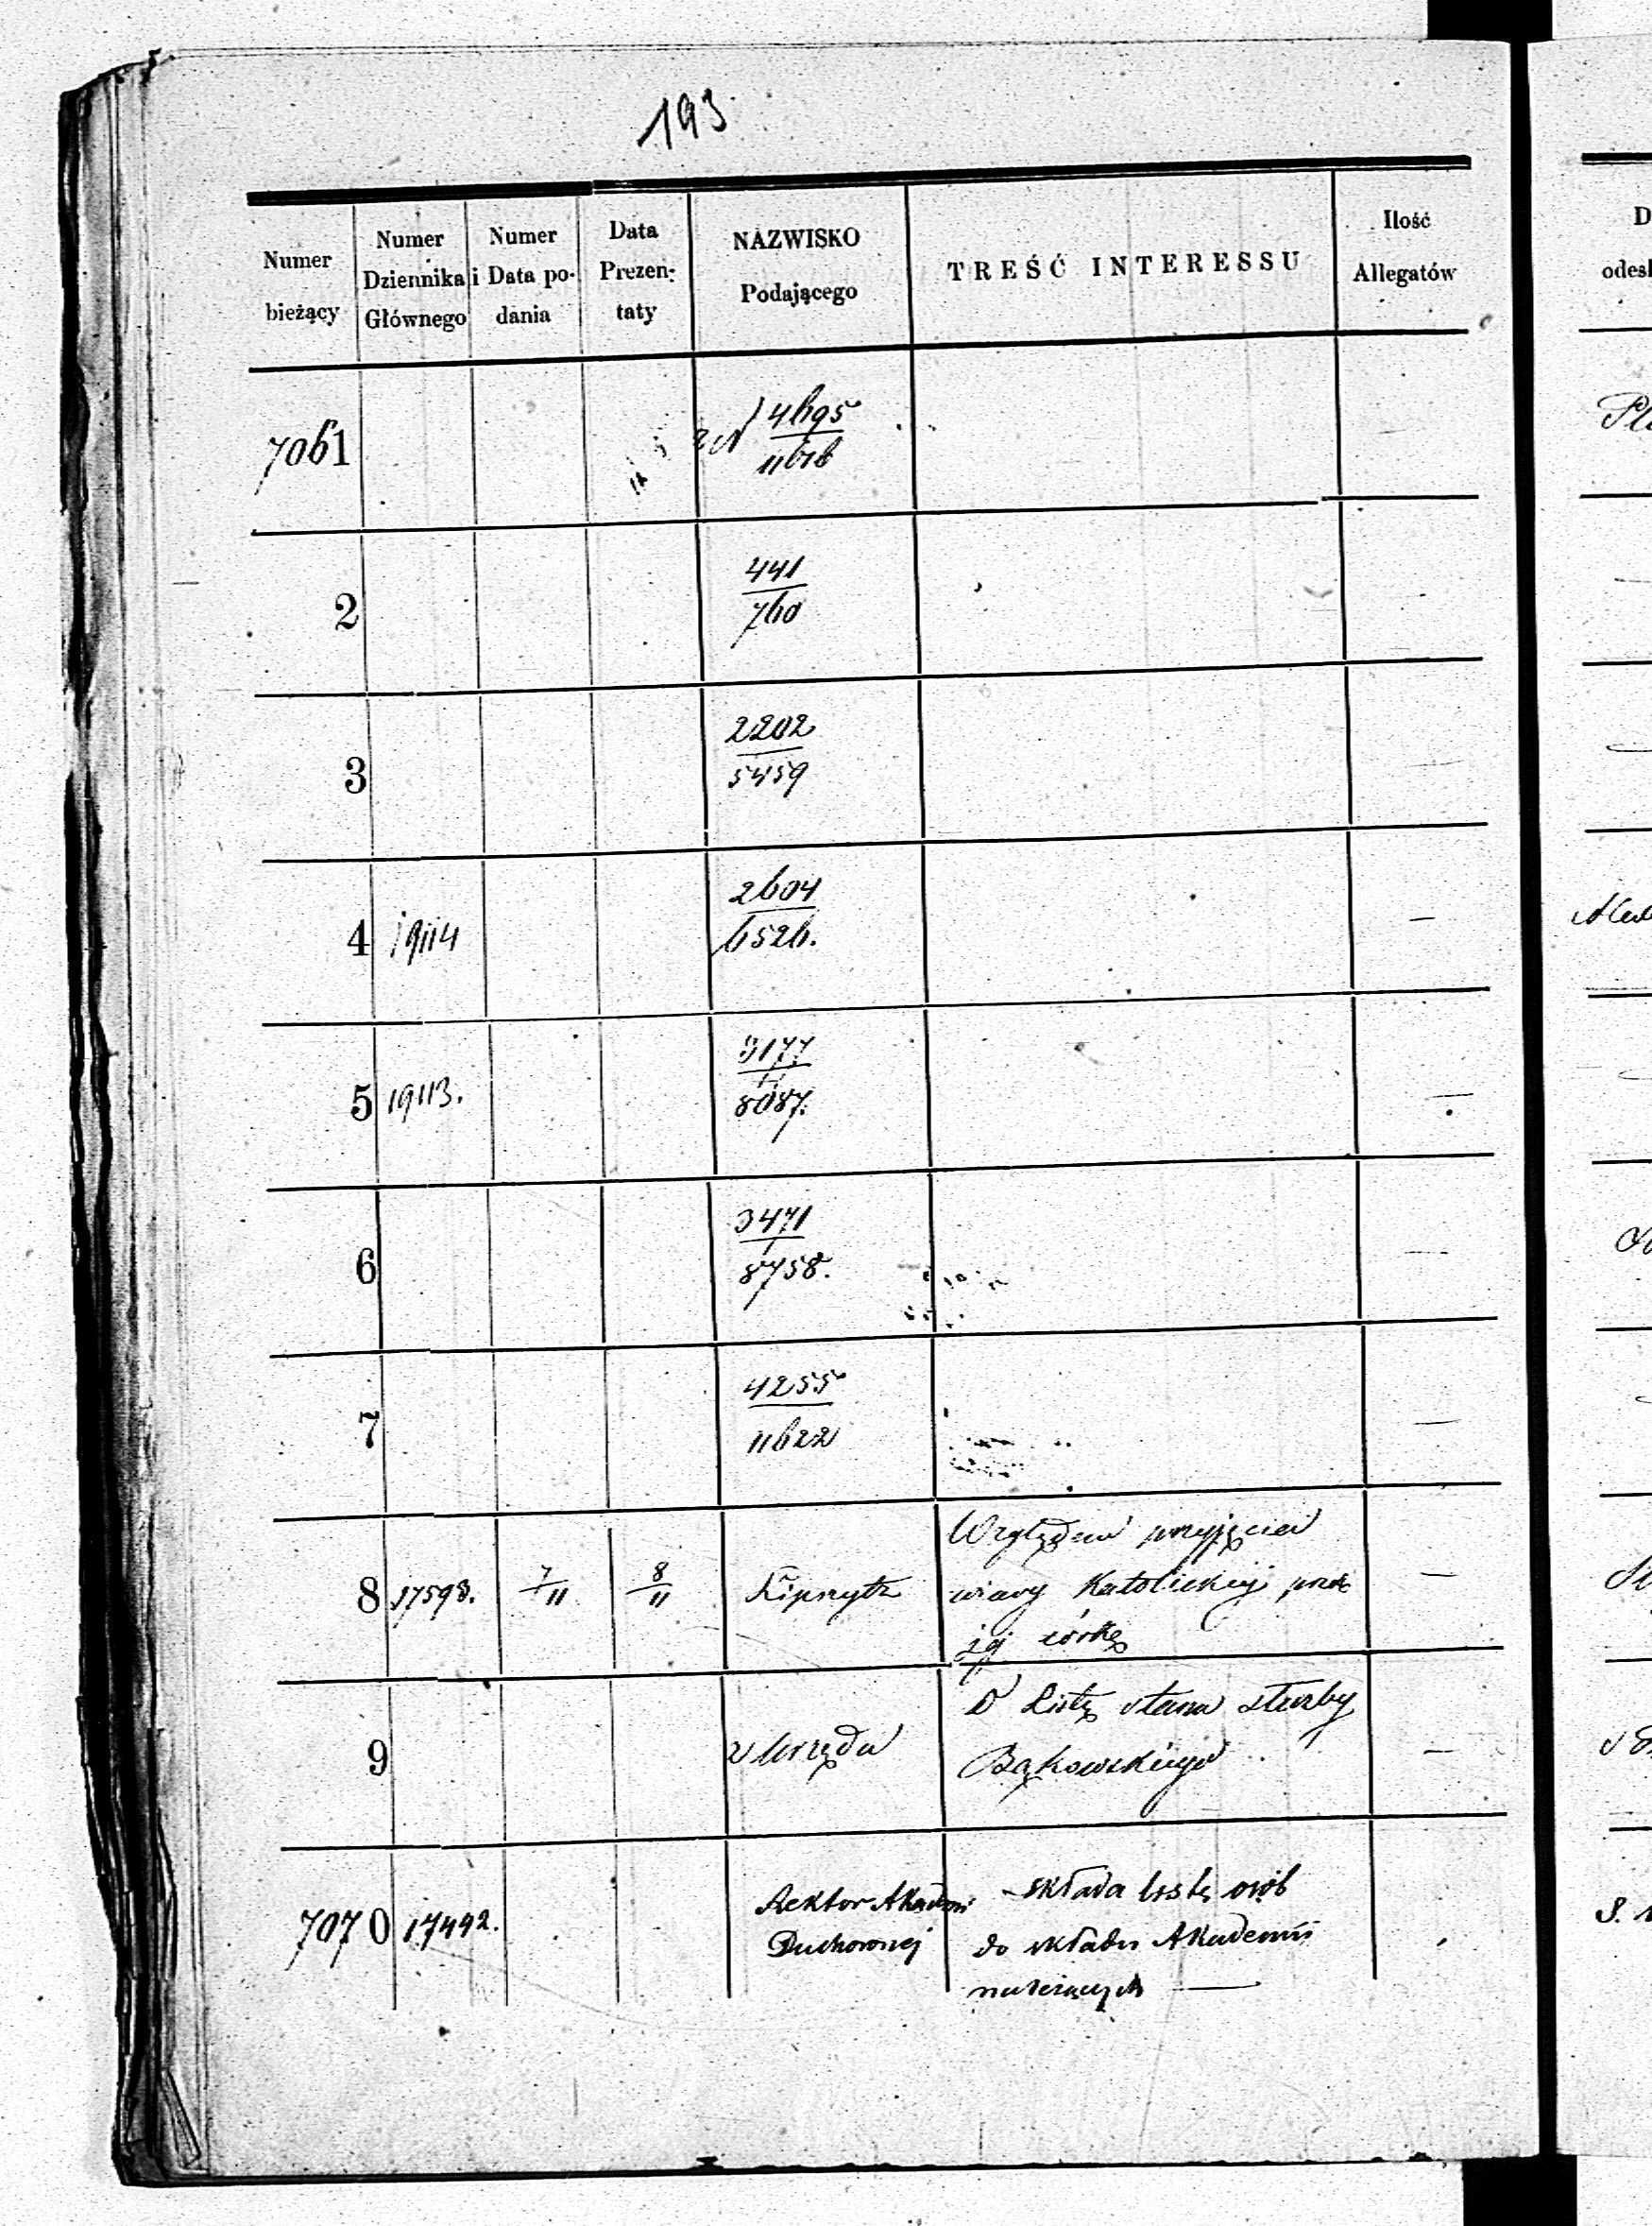 193
Numer bieżący
Numer Dziennika Głównego
Numer i Data po- dania
Data Prezen- taty
NAZWISKO Podającego
TREŚĆ INTERESSU
Ilość Allegatów
D
odesł
7061
ad 4695
11676
2
441
760
3
2202
5459
4 19114
2604
6526.
—
5 19113.
3177
8087.
—
6
3471
8758.
—
7
4255
11622
—
8 17598. 7/11 8/11
Względem przyjęcia
wiary Katolickiej przez
jej córkę
—
9 z Urzędu
O Listę stanu służby
Bąkowskiego
—
7070 17492.
Rektor Akademii
Duchownej
składa listę osób
do składu Akademii
należących —